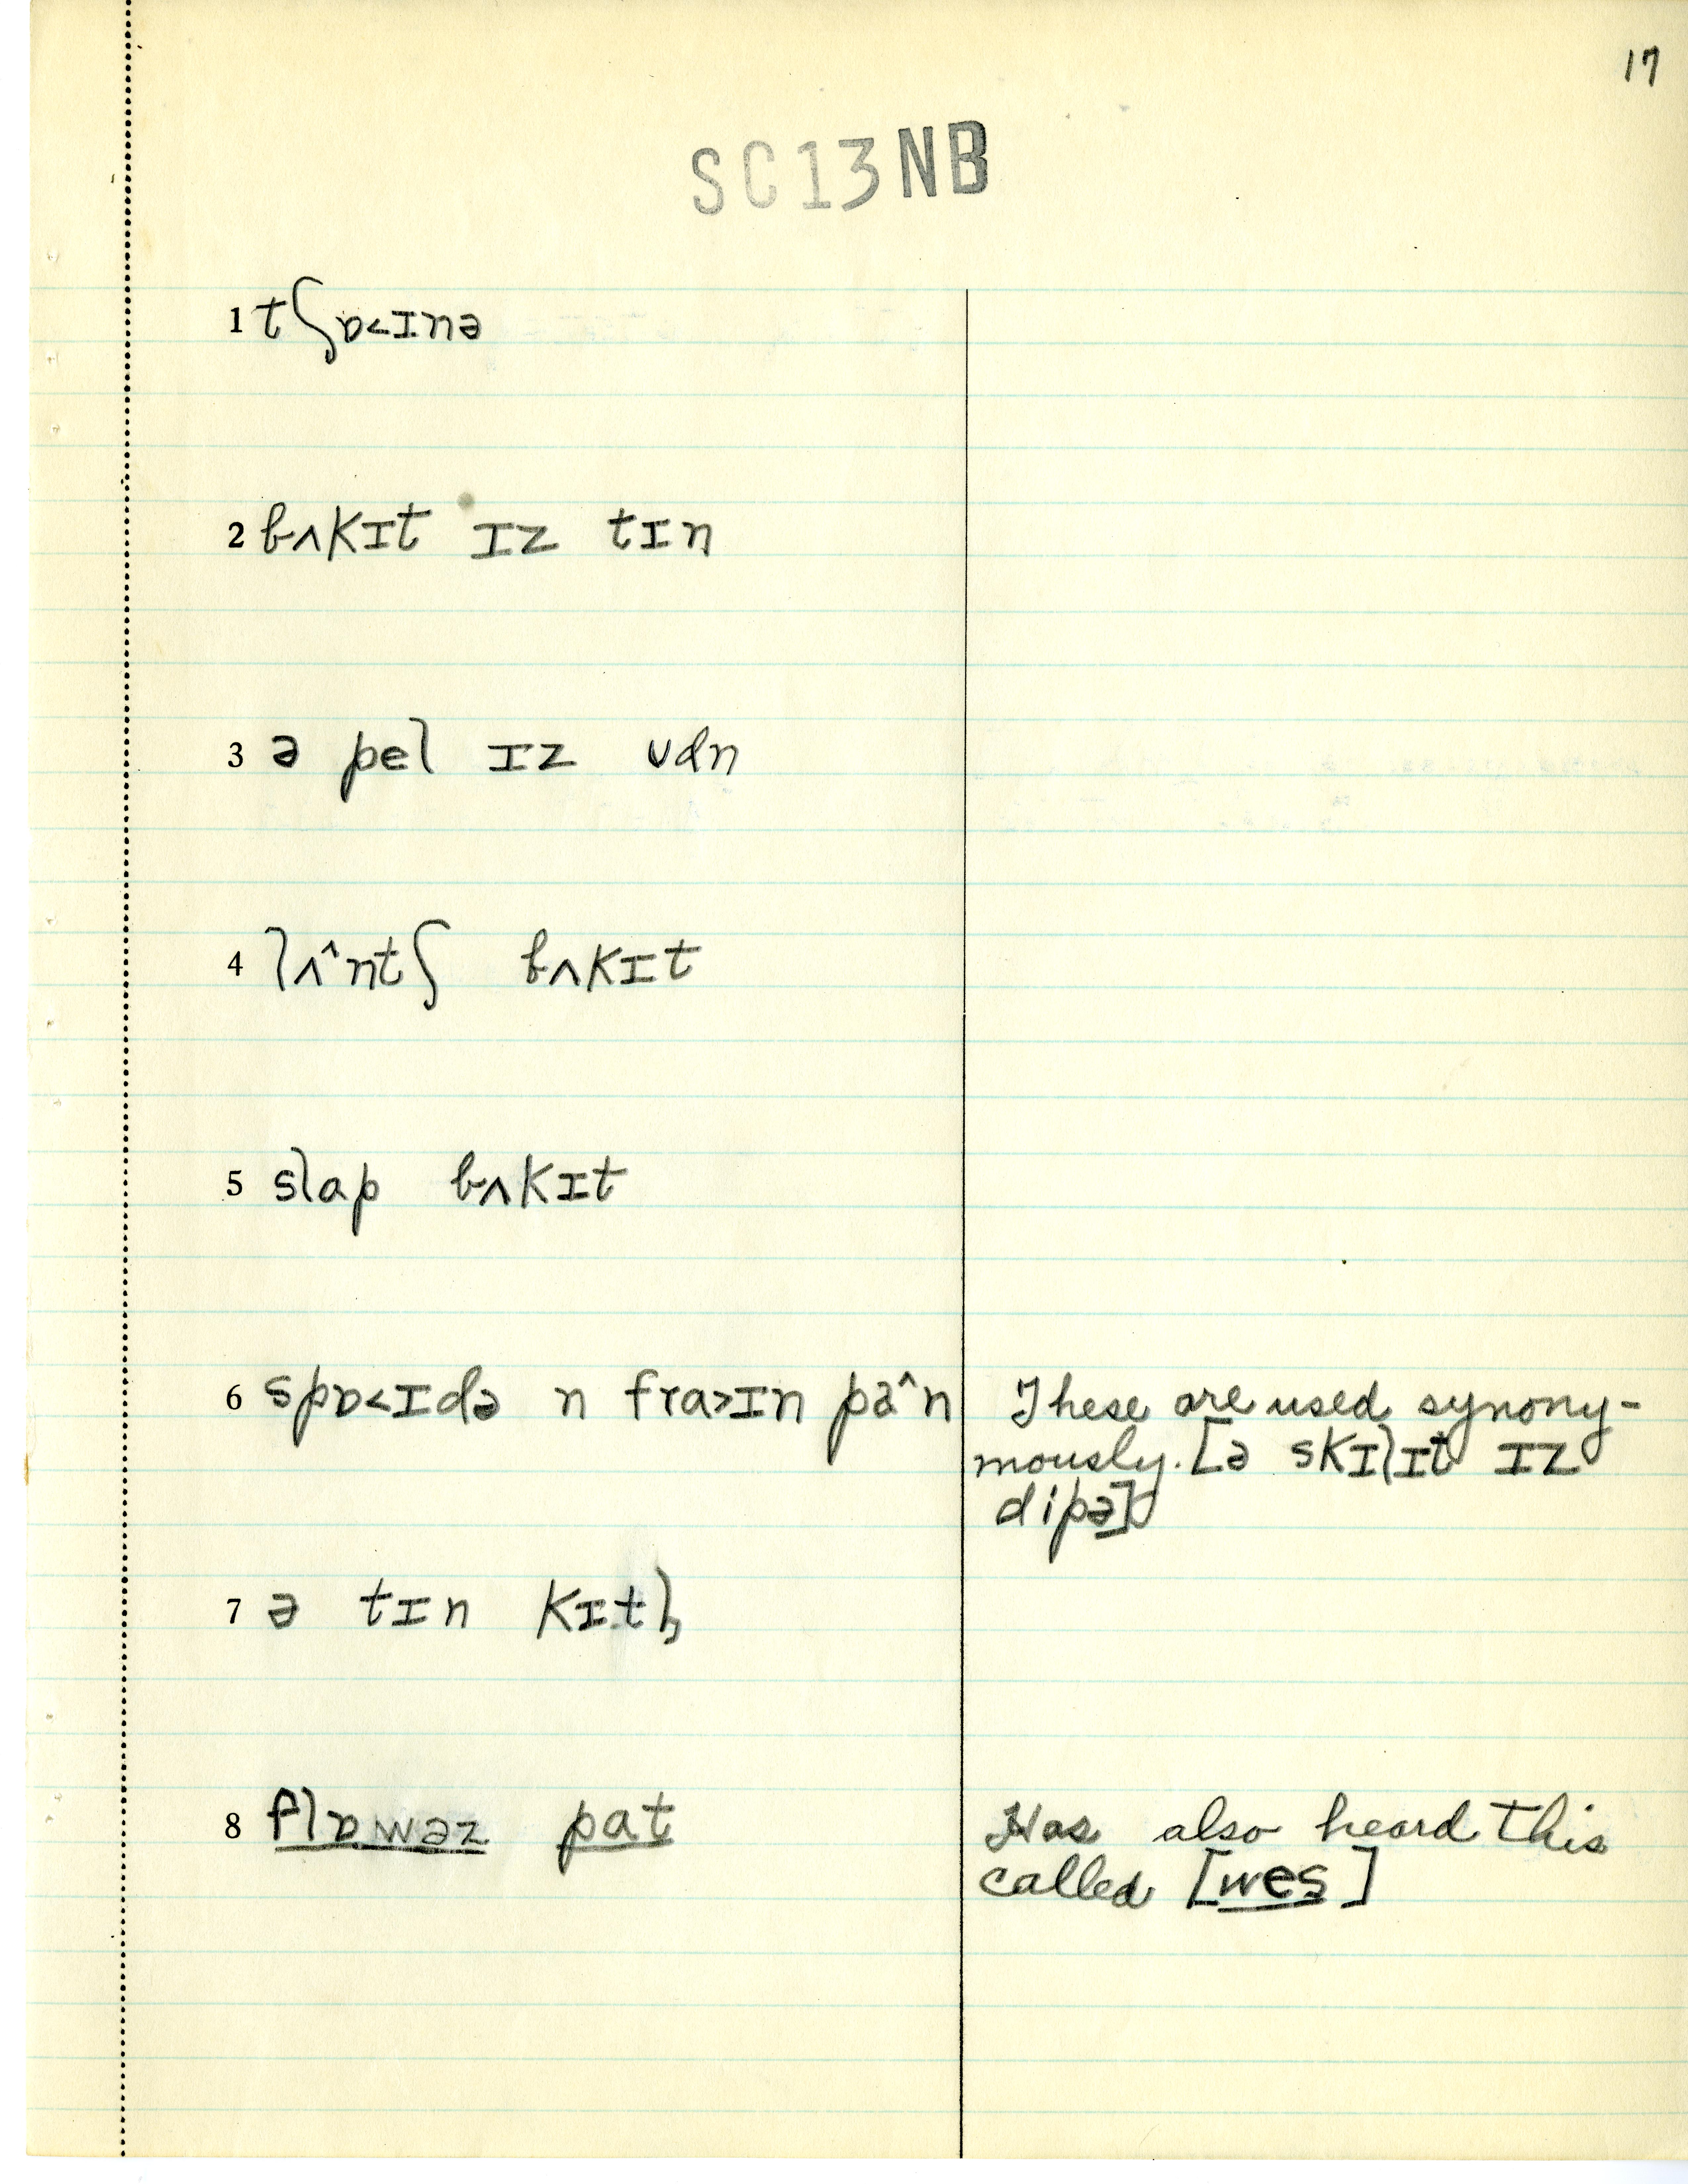 17
SC13NB
1 tʃɒ<ɪnə
2 bʌkɪt ɪz tɪn
3 ə pel ɪz ʊdn
4 lʌ^ntʃ bʌkɪt
5 slap bʌkɪt
6 spɒ<ɪdə n fra>ɪn pa^n These are used synony-
mously. [ə skɪlɪt ɪz
dipə]
7 ə tɪn kɪtl̩
8 flɒwəz pat Has also heard this
called [wes]